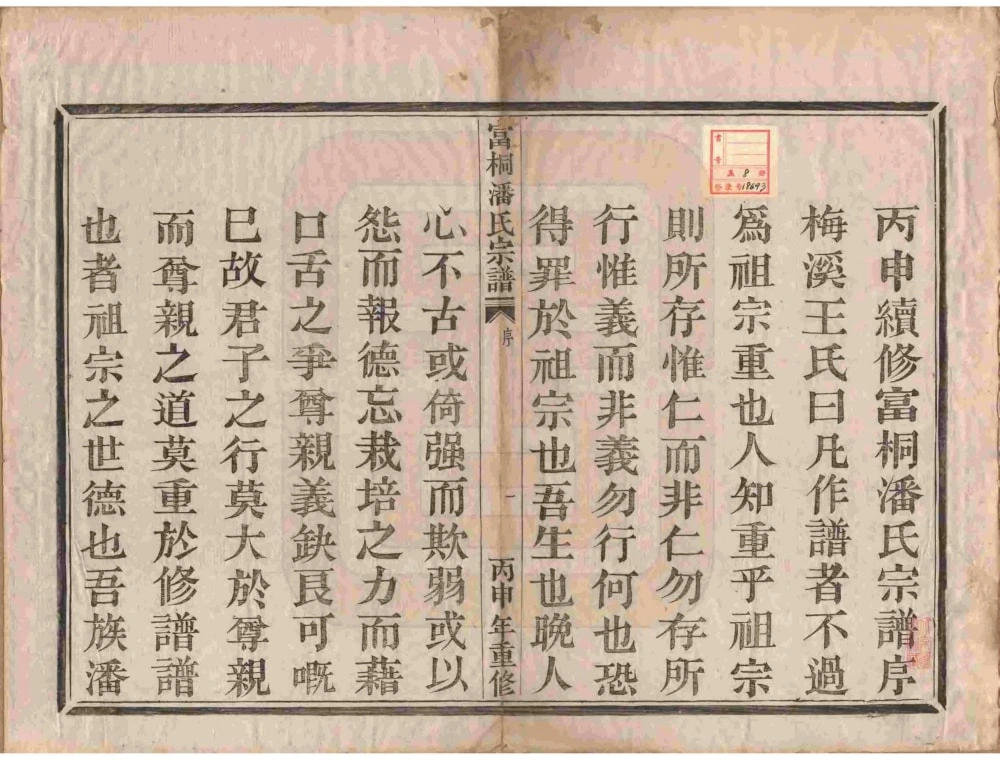 丙申續修富桐潘氏宗譜序
梅溪王氏曰凡作譜者不過
爲祖宗重也人知重乎祖宗
則所存惟仁而非仁勿存所
行惟義而非義勿行何也恐
得罪於祖宗也吾生也晚人
富桐潘氏宗譜 序 一 丙申年重修
心不古或倚强而欺弱或以
怨而報德忘栽培之力而藉
口舌之爭尊親義缺良可嘅
巳故君子之行莫大於尊親
而尊親之道莫重於修譜譜
也者祖宗之世德也吾族潘
8
18693